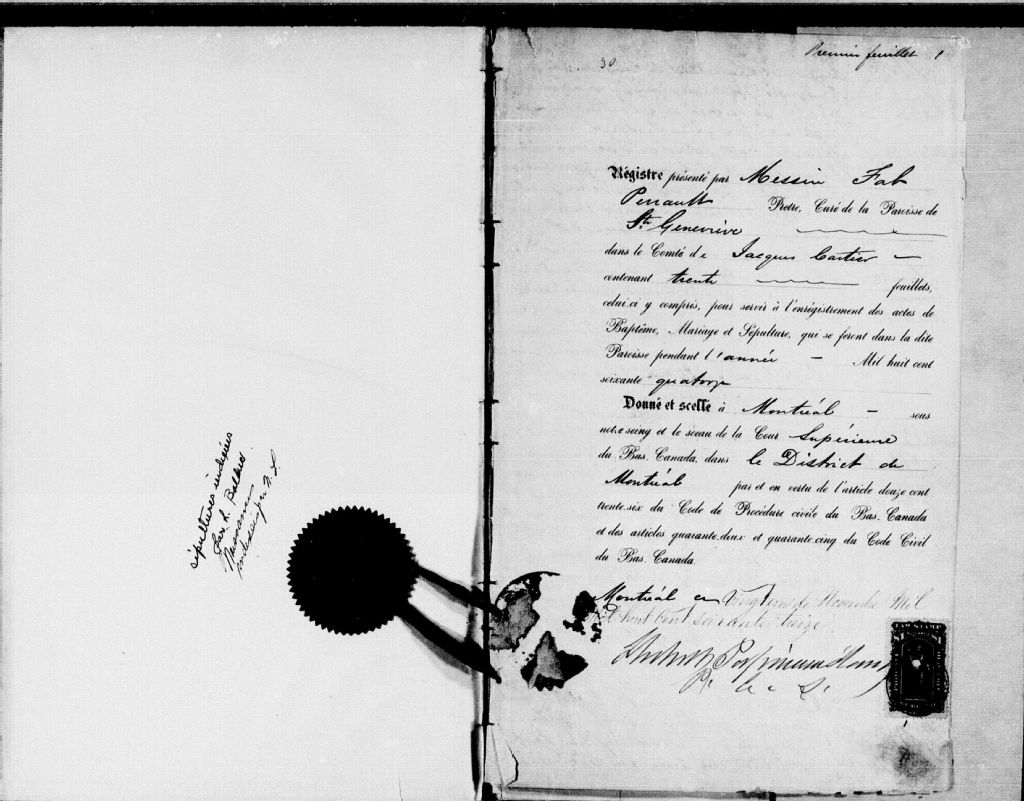 sépultures indexées
par L. Ballard
Mariages
indexés par A. L
Premier feuillet 1
30
Régistre présenté par Messire Fab
Perrault Prêtre, Curé de la Paroisse de
Ste Geneviève
dans le Comté de Jacques Cartier —
contenant trente feuillets,
celui-ci y compris, pour servir à l'enrégistrement des actes de
Baptême, Mariage et Sépulture, qui se feront dans la dite
Paroisse pendant l'année — Mil huit cent
soixante quatorze
Donné et scellé à Montréal — sous
notre seing et le sceau de la Cour Supérieure
du Bas-Canada, dans le District de
Montréal par et en vertu de l'article douze cent
trente-six du Code de Procédure civile du Bas-Canada
et des articles quarante-deux et quarante-cinq du Code Civil
du Bas-Canada.
Montréal ce Vingt de Novembre Mil
huit Cent soixante treize
Papineau Honey
P. C. S.